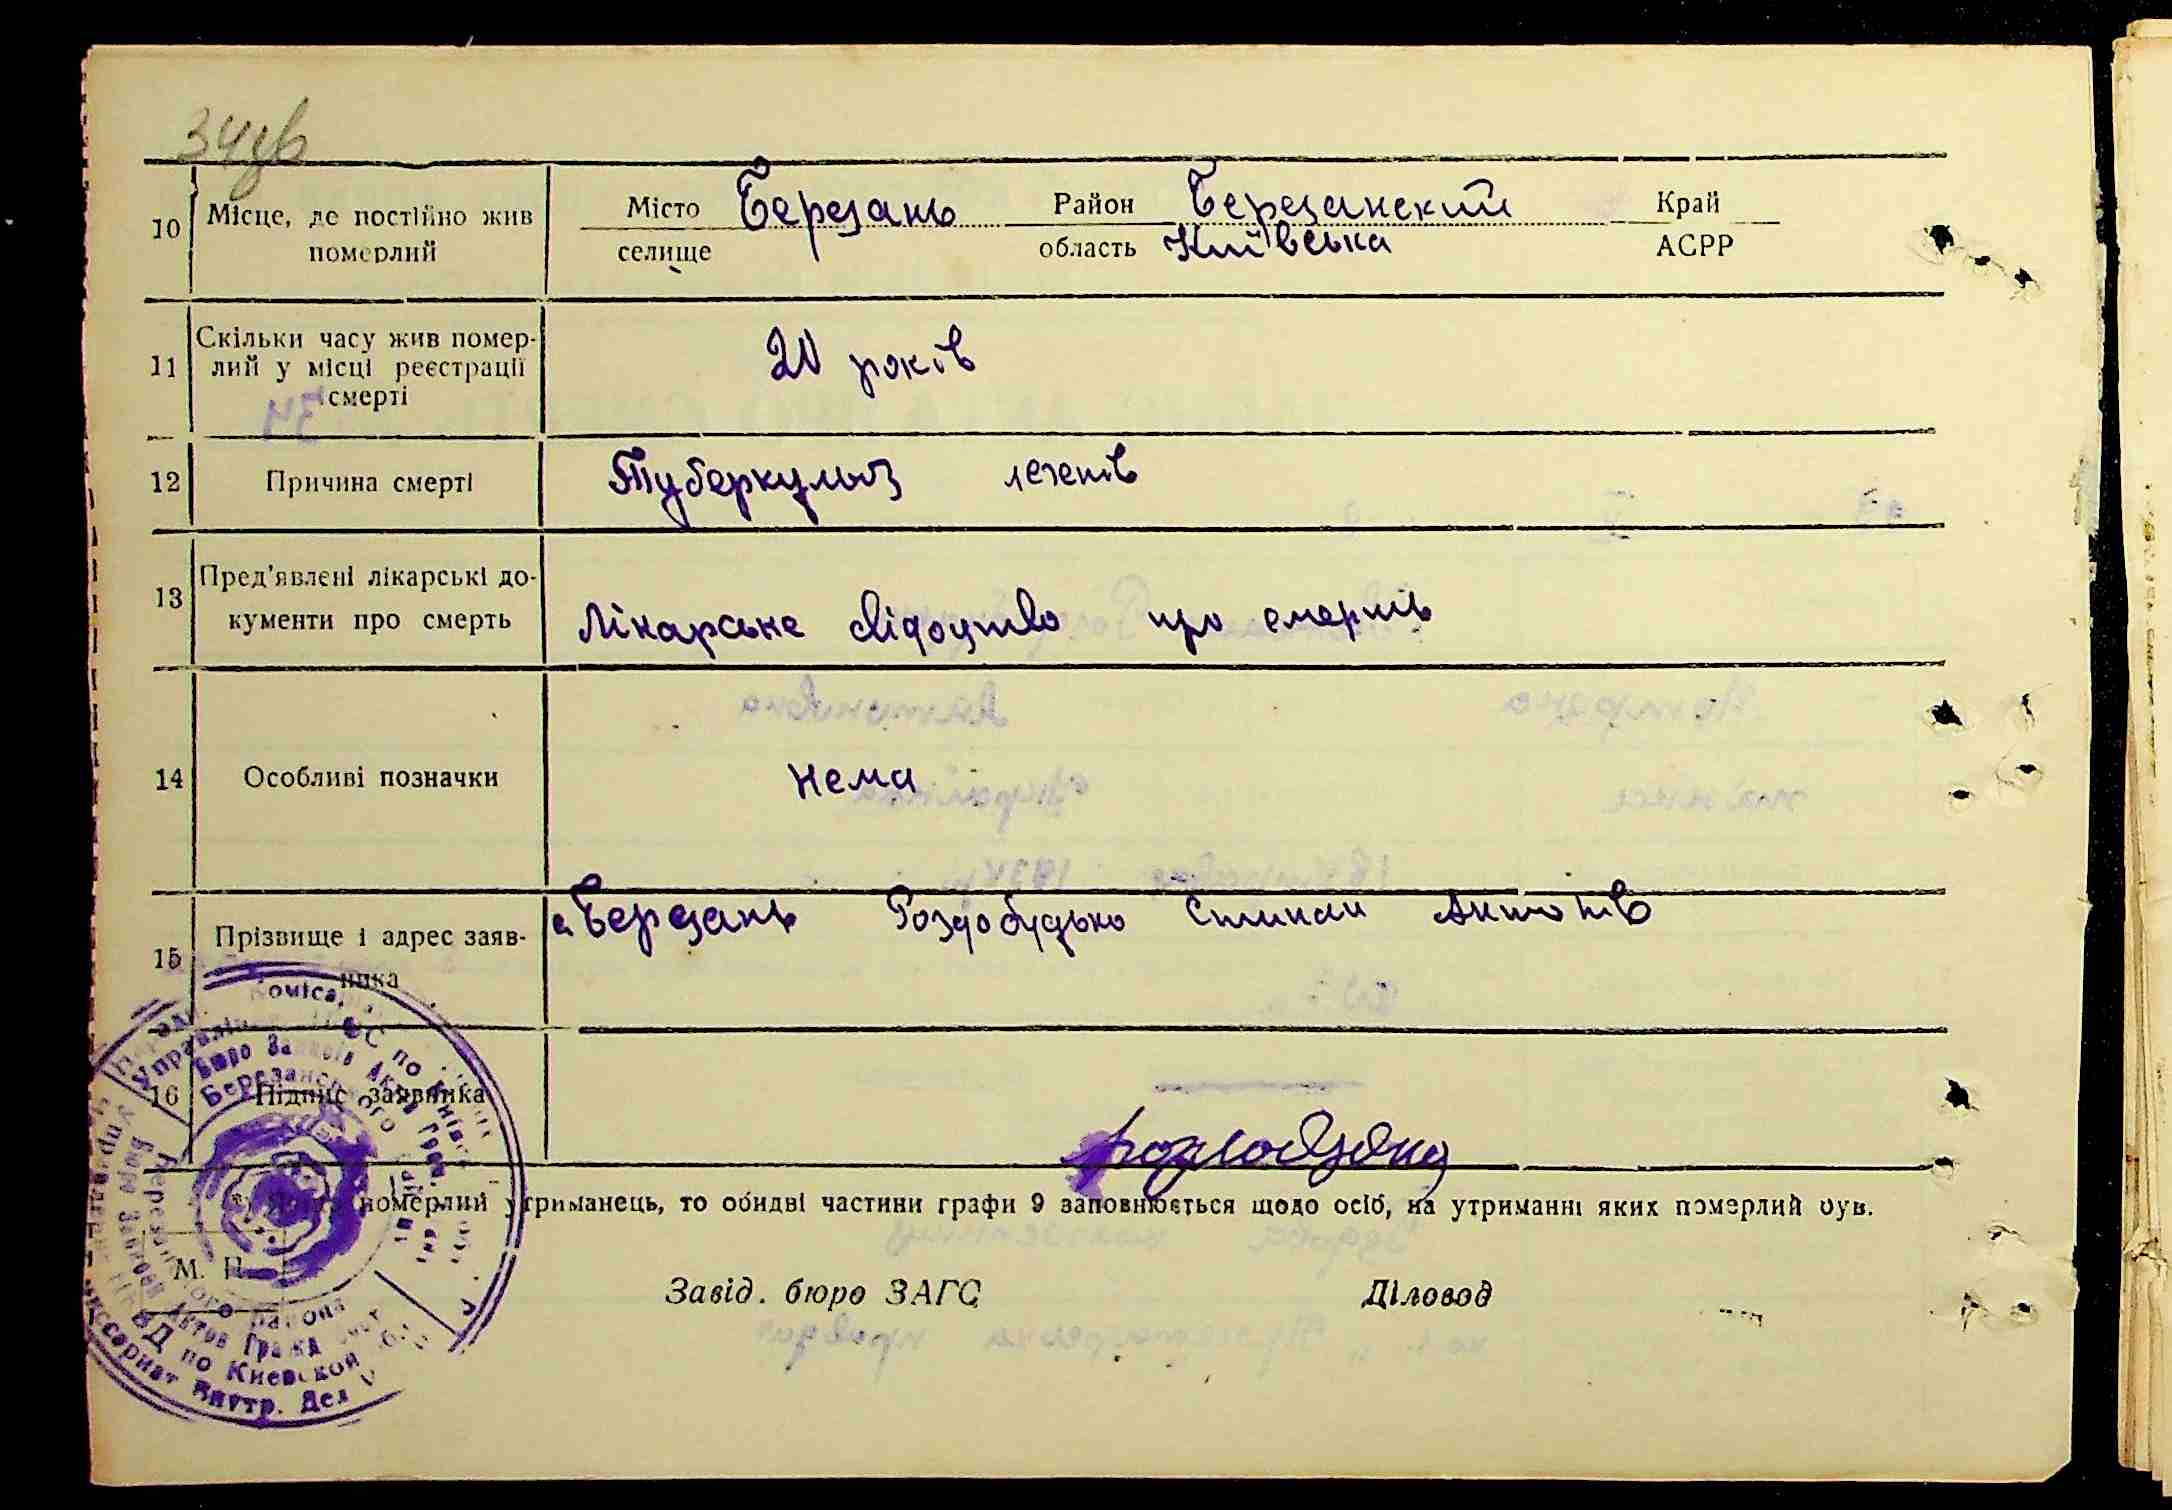 34зв
10 Місце, де постійно жив Місто Березань Район Березанский Край
померлий селище область Київська АСРР
11 Скільки часу жив помер-
лий у місці реєстрації 20 років
смерті
12 Причина смерті Туберкульоз легенів
13 Пред'явлені лікарські до-
кументи про смерть Лікарське свідоцтво про смерть
14 Особливі позначки Нема
15 Прізвище і адрес заяв- с Березань Роздобудько Степан Антонів
ника
16 Підпис заявника Роздобудько
померлий утриманець, то обидві частини графи 9 заповнюється щодо осіб, на утриманні яких померлий був.
М. П.
Завід. бюро ЗАГС Діловод
Управління по
Бюро Записів Актів Гром.
Березанського
Березанского района
Бюро Записей Актов Гражд.
НКВД по Киевской
Внутр. Дел